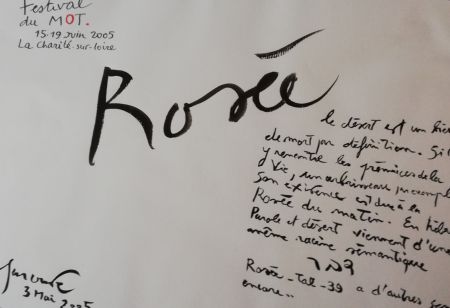 Festival
du MOT.
15.19 juin 2005
La Charité-sur-Loire
Rosée
le désert est un
de mort par définition. Si
y rencontre les prémices de la
Vie, un arbrisseau par exempl
son existence est due à la
Rosée du matin. En hébr
Parole et désert viennent d'une
même racine sémantique
דבר
Rosée_tal_39 a d'autres
encore...
3 Mai 2005